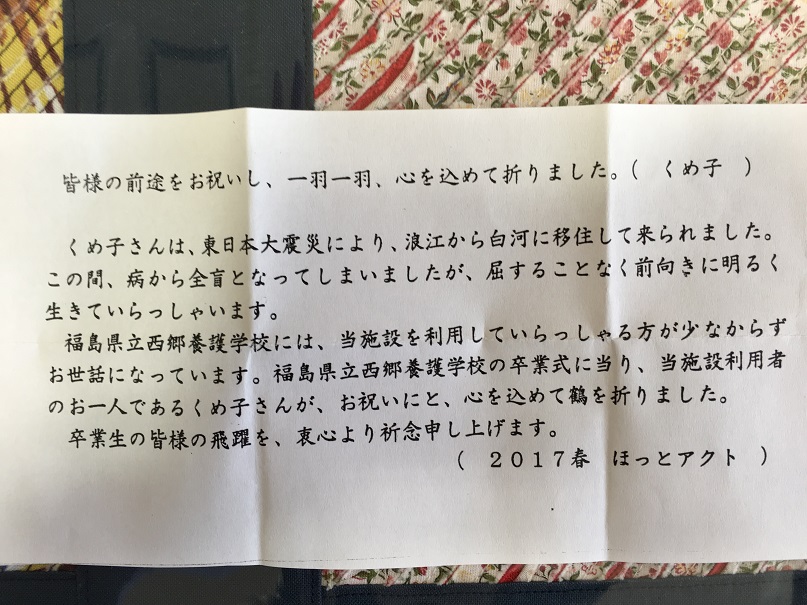 皆様の前途をお祝いし、一羽一羽、心を込めて折りました。(　くめ子　)
くめ子さんは、東日本大震災により、浪江から白河に移住して来られました。
この間、病から全盲となってしまいましたが、屈することなく前向きに明るく
生きていらっしゃいます。
福島県立西郷養護学校には、当施設を利用していらっしゃる方が少なからず
お世話になっています。福島県立西郷養護学校の卒業式に当り、当施設利用者
のお一人であるくめ子さんが、お祝いにと、心を込めて鶴を折りました。
卒業生の皆様の飛躍を、衷心より祈念申し上げます。
(　２０１７春　ほっとアクト　)